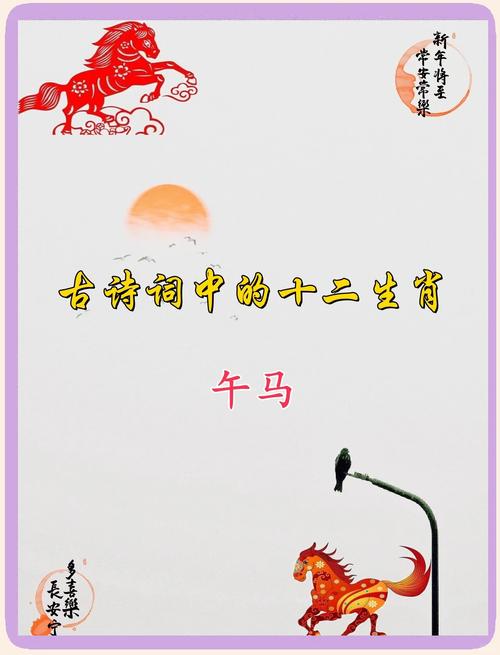 新年将至
常安常樂
古诗词中的十二生肖
午马
多喜樂
長安宁